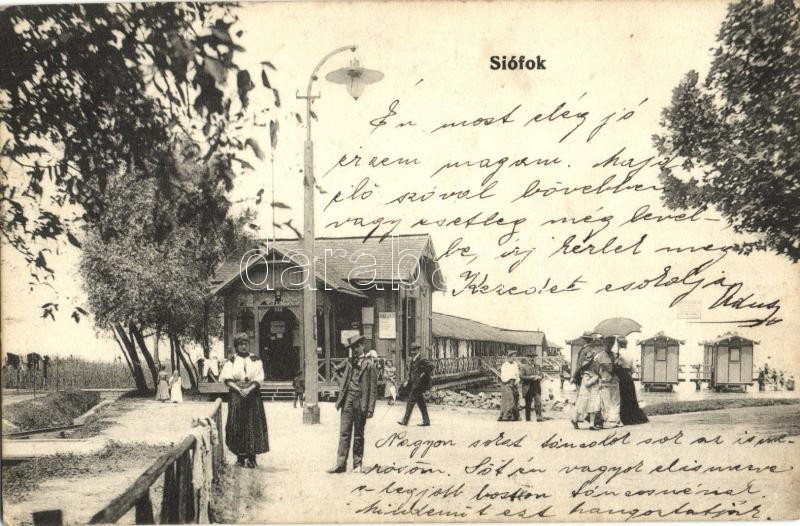 Siófok
Én most elég jó
érzem magam. majd
élő szóval bővebben
vagy esetleg még levél-
be, írj kérlek meg
Kezedet csókolja
darabanth
Nagyon sokat táncolok sok az isme-
rősöm. Sőt én vagyok elismerve
a legjobb táncosnénak.
Mindenütt ezt hangoztatják.